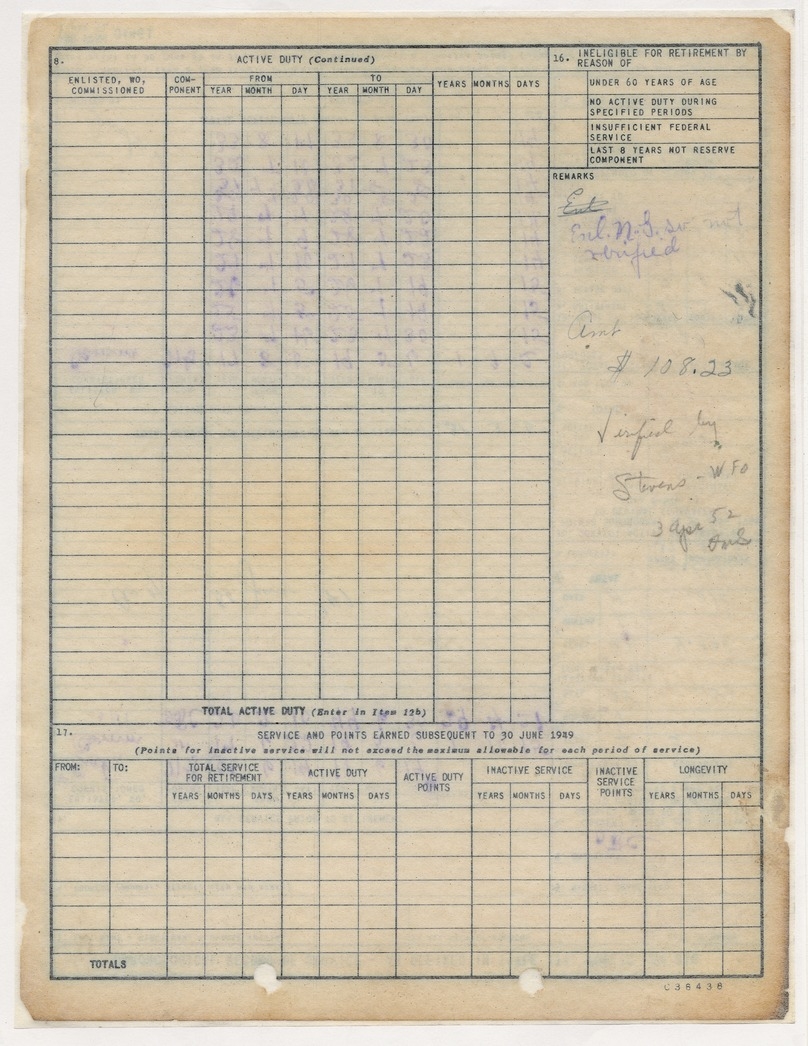 8. ACTIVE DUTY (Continued)
ENLISTED, WO, COMMISSIONED
COM-PONENT
FROM
TO
YEAR MONTH DAY YEAR MONTH DAY
YEARS MONTHS DAYS
16. INELIGIBLE FOR RETIREMENT BY
REASON OF
UNDER 60 YEARS OF AGE
NO ACTIVE DUTY DURING
SPECIFIED PERIODS
INSUFFICIENT FEDERAL
SERVICE
LAST 8 YEARS NOT RESERVE
COMPONENT
REMARKS
Enl
Enl. N.G. sv not
verified
Amt
$ 108.23
Verified by
Stevens - WFO
3 Apr 52
TOTAL ACTIVE DUTY (Enter in Item 12b)
17. SERVICE AND POINTS EARNED SUBSEQUENT TO 30 JUNE 1949
(Points for inactive service will not exceed the maximum allowable for each period of service)
FROM: TO:
TOTAL SERVICE
FOR RETIREMENT
ACTIVE DUTY
ACTIVE DUTY
POINTS
INACTIVE SERVICE
INACTIVE
SERVICE
POINTS
LONGEVITY
YEARS MONTHS DAYS YEARS MONTHS DAYS YEARS MONTHS DAYS YEARS MONTHS DAYS
TOTALS
C38438